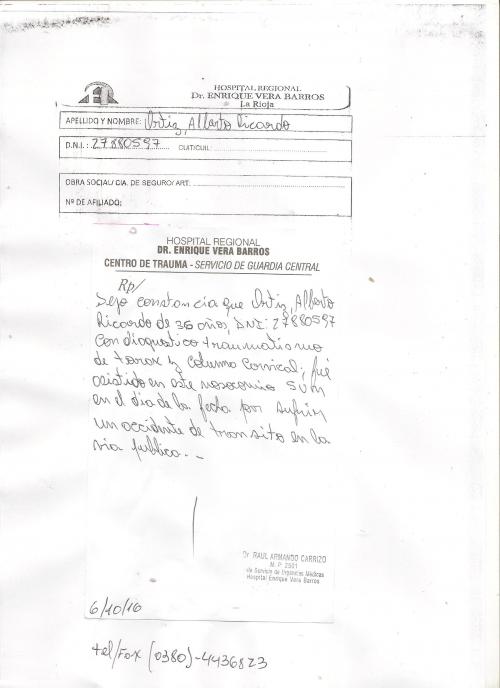 HOSPITAL REGIONAL
Dr. ENRIQUE VERA BARROS
La Rioja
APELLIDO Y NOMBRE: Ortiz, Alberto Ricardo
D.N.I.: 27880597 CUIT/CUIL:
OBRA SOCIAL/ CIA. DE SEGURO/ ART:
Nº DE AFILIADO:
HOSPITAL REGIONAL
DR. ENRIQUE VERA BARROS
CENTRO DE TRAUMA - SERVICIO DE GUARDIA CENTRAL
Rp/
Dejo constancia que Ortiz, Alberto
Ricardo de 36 años, DNI: 27880597
con diagnostico traumatismo
de torax y columna cervical; fué
asistido en este nosocomio
en el dia de la fecha por sufrir
un accidente de transito en la
via publica. _
Dr RAUL ARMANDO CARRIZO
M. P. 2501
de Servicio de Urgencias Médicas
Hospital Enrique Vera Barros
6/10/16
tel/Fax (0380)-4436823